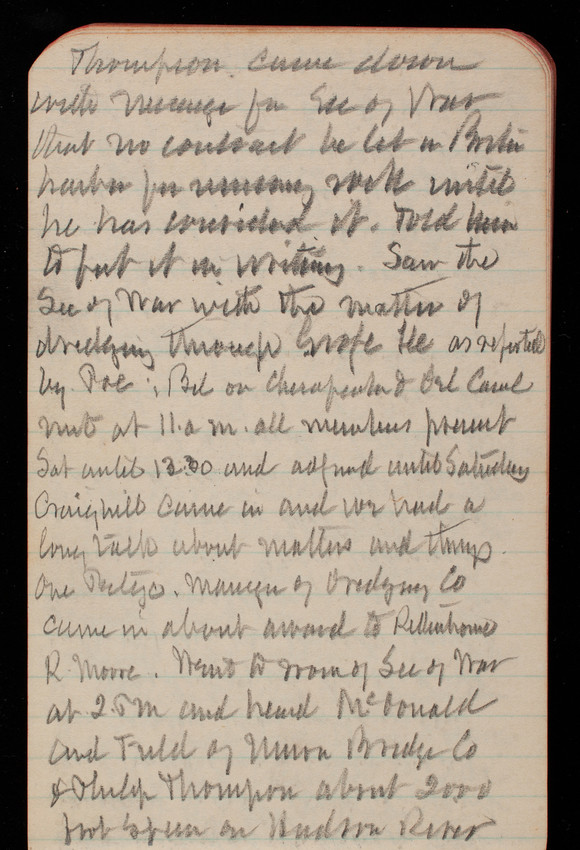 Thompson came down
with message fr Sec of War
that no contract be let in Boston
harbor for removing rock until
he has considered it. Told him
to put it in writing. Saw the
Sec of War with the matter of
dredging through Grosse Ile as reported
by Poe; Bd on Chesapeake & Del Canal
met at 11 a m. all members present
Sat until 12.30 and adjnd until Saturday
Craighill came in and we had a
long talk about matters and things.
One Manager of Dredging Co
came in about award to Rittenhouse
R. Moore. Went to room of Sec of War
at 2 P M and heard McDonald
and Field of Union Bridge Co
& Philip Thompson about 2000
foot span on Hudson River